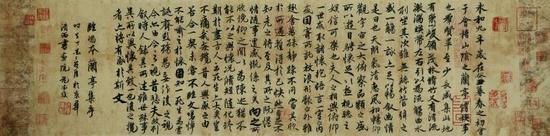 永和九年歲在癸丑暮春之初會
于會稽山陰之蘭亭脩稧事
也羣賢畢至少長咸集此地
有崇山峻領茂林脩竹又有清流
激湍暎帶左右引以為流觴曲水
列坐其次雖無絲竹管弦之
盛一觴一詠亦足以暢敘幽情
是日也天朗氣清惠風和暢仰
觀宇宙之大俯察品類之盛
所以遊目騁懷足以極視聽之
娛信可樂也夫人之相與俯仰
一世或取諸懷抱悟言一室之內
或因寄所託放浪形骸之外雖
趣舍萬殊靜躁不同當其欣
於所遇蹔得於己怏然自足不
知老之將至及其所之既惓情
隨事遷感慨係之矣向之所
欣俛仰之間以為陳迹猶不
能不以之興懷況脩短隨化終
期於盡古人云死生亦大矣豈
不痛哉每攬昔人興感之由
若合一契未嘗不臨文嗟悼不
能喻之於懷固知一死生為虛
誕齊彭殤為妄作後之視今
亦由今之視昔悲夫故列
敘時人錄其所述雖世殊事
異所以興懷其致一也後之攬
者亦將有感於斯文
臨馮本蘭亭集序